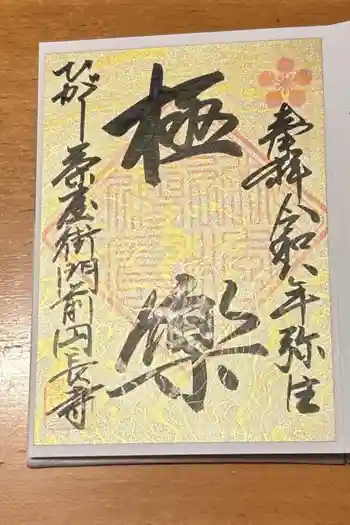 奉拝 令和八年弥生
極樂
ひがし茶屋街門前 円長寺